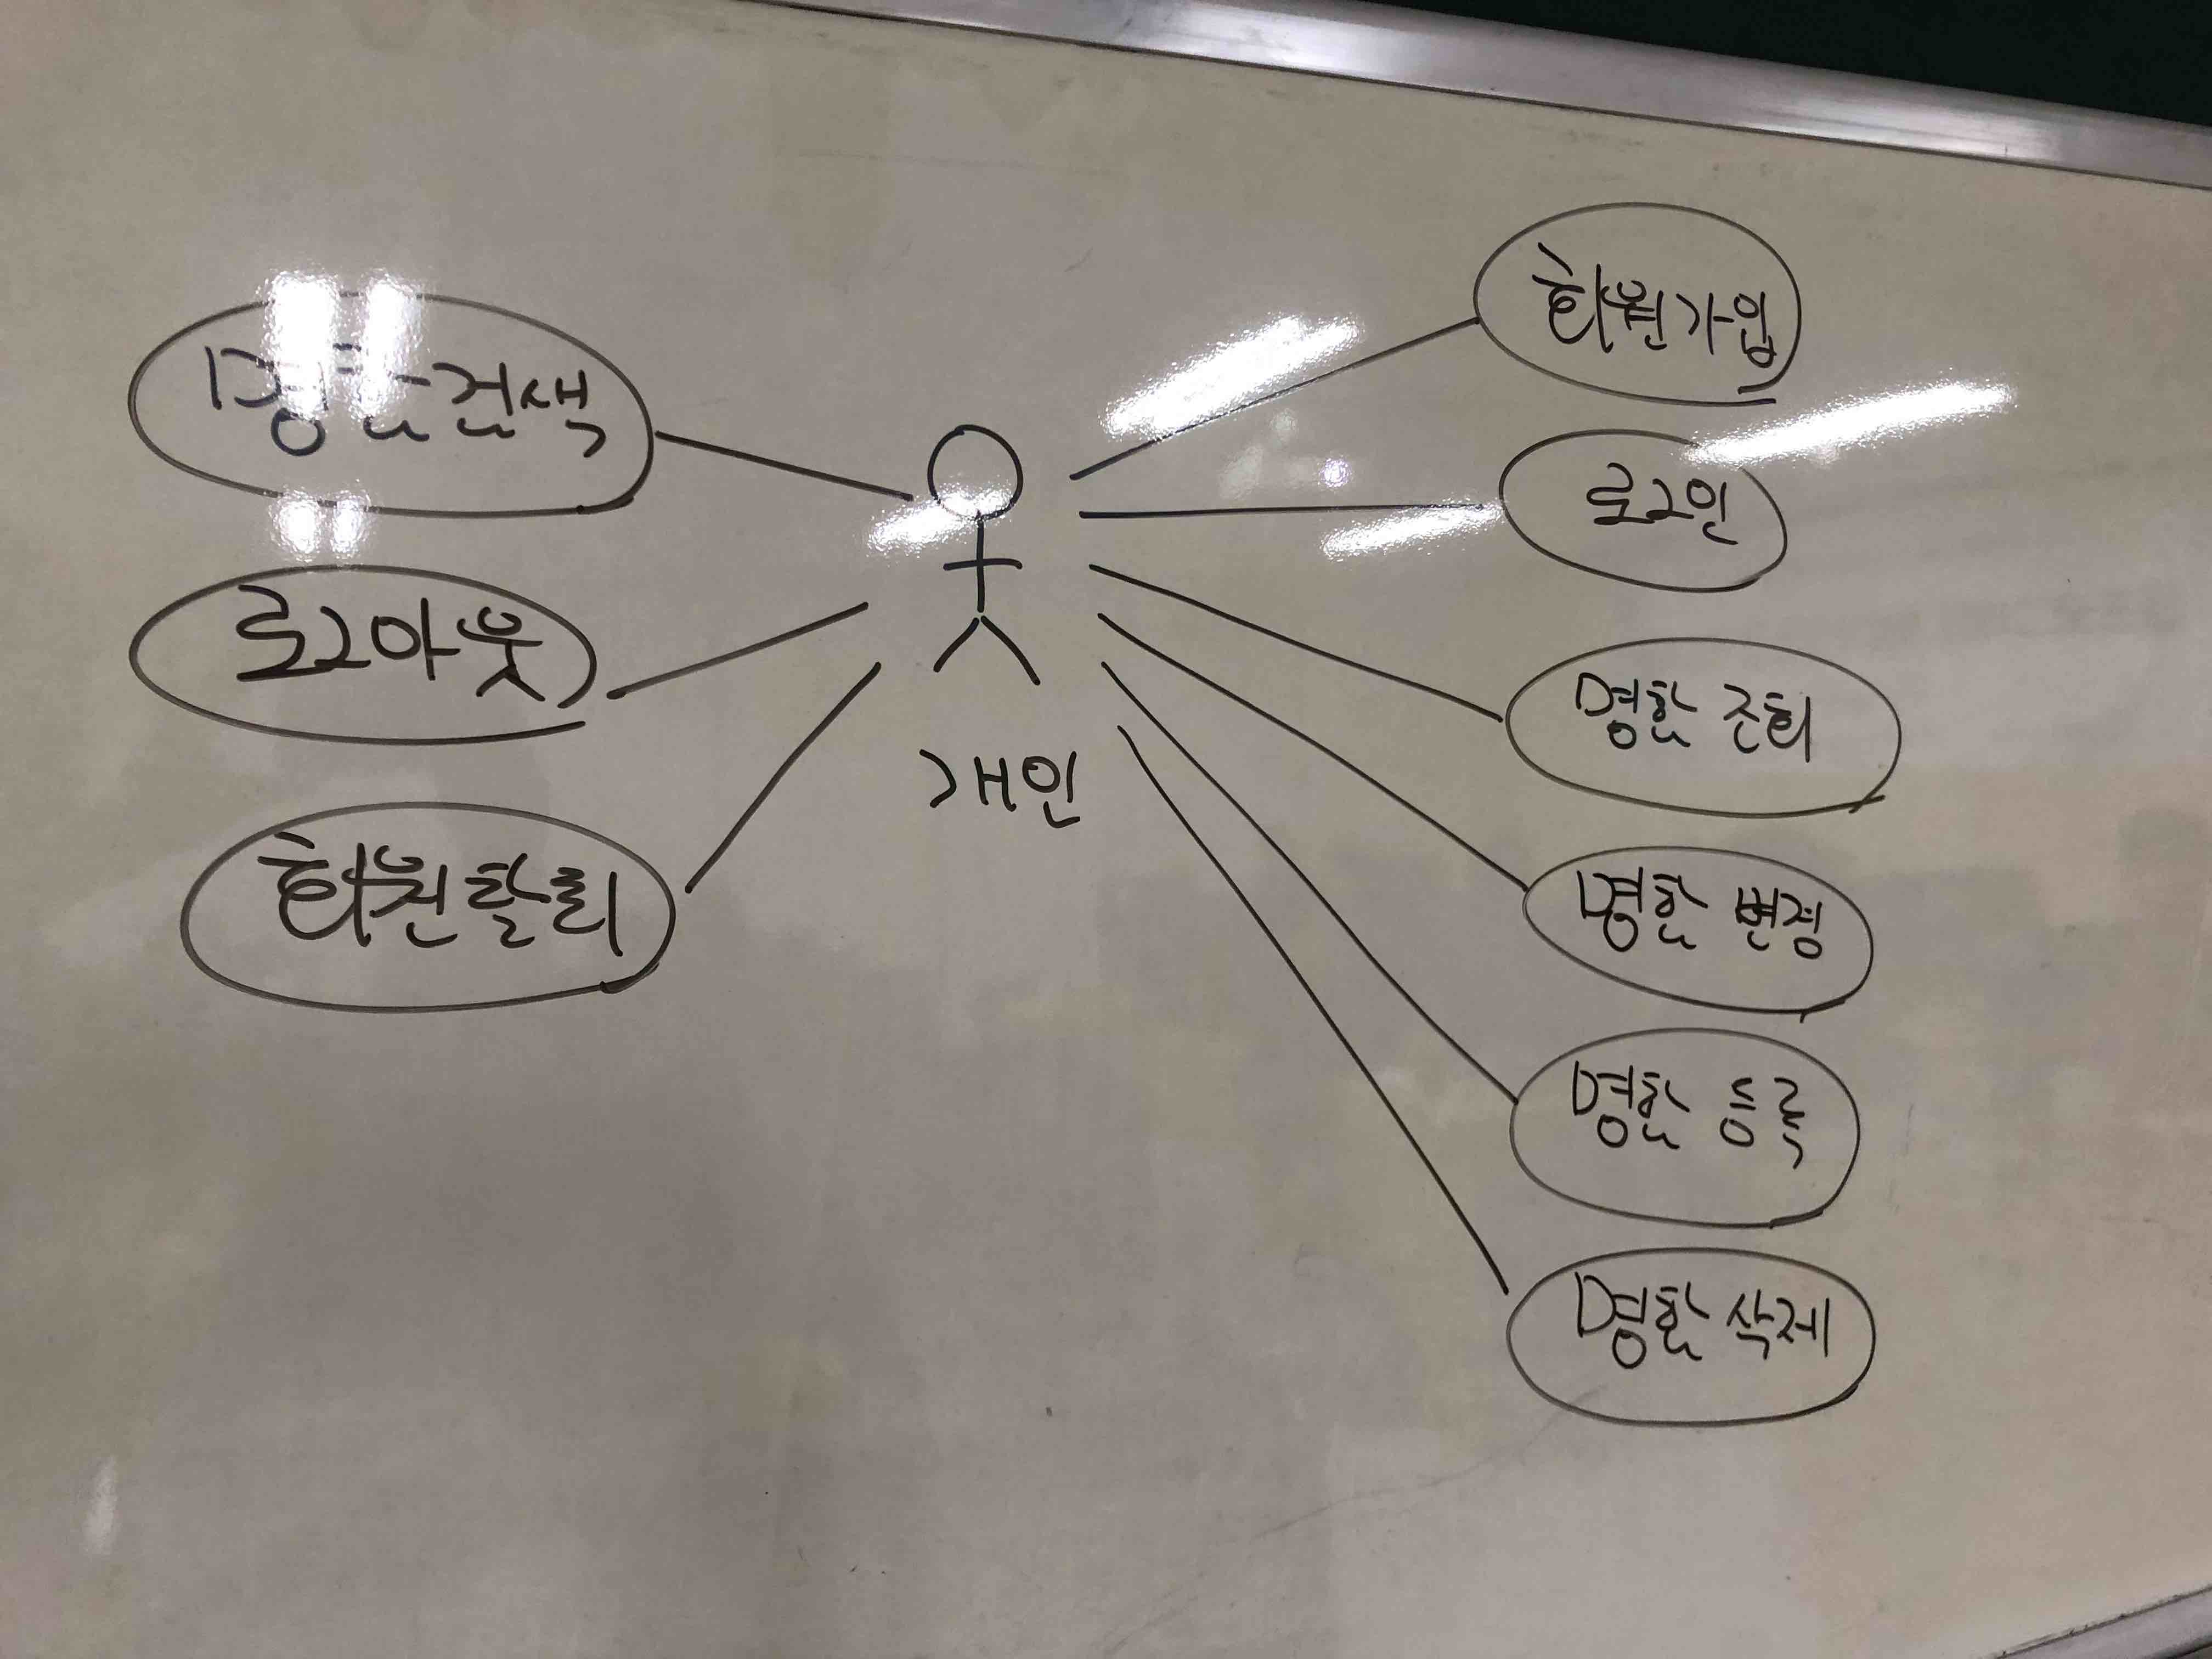 명함검색
로그아웃
회원탈퇴
개인
회원가입
로그인
명함 조회
명함 변경
명함 등록
명함 삭제